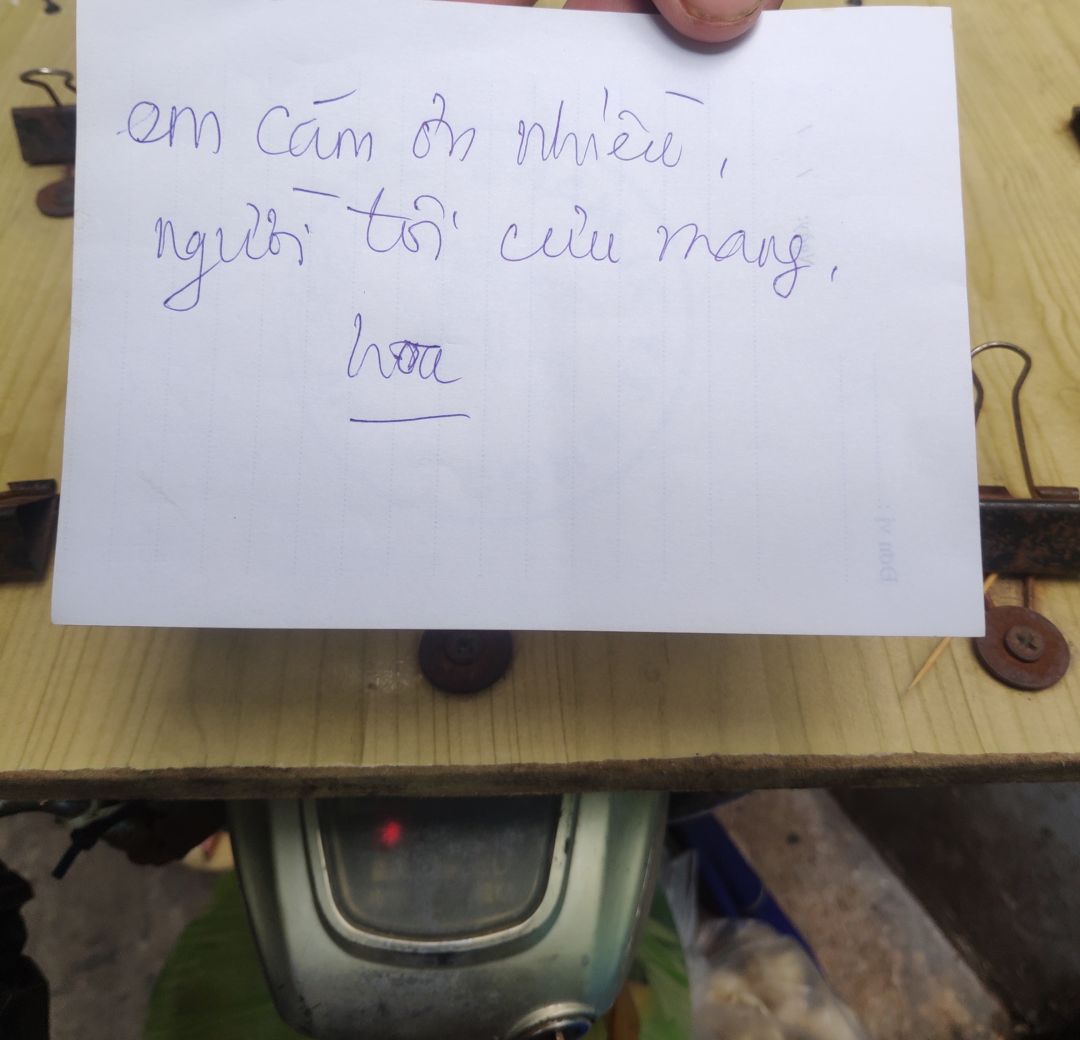 em cám ơn nhiều,
người tôi cưu mang,
hoa